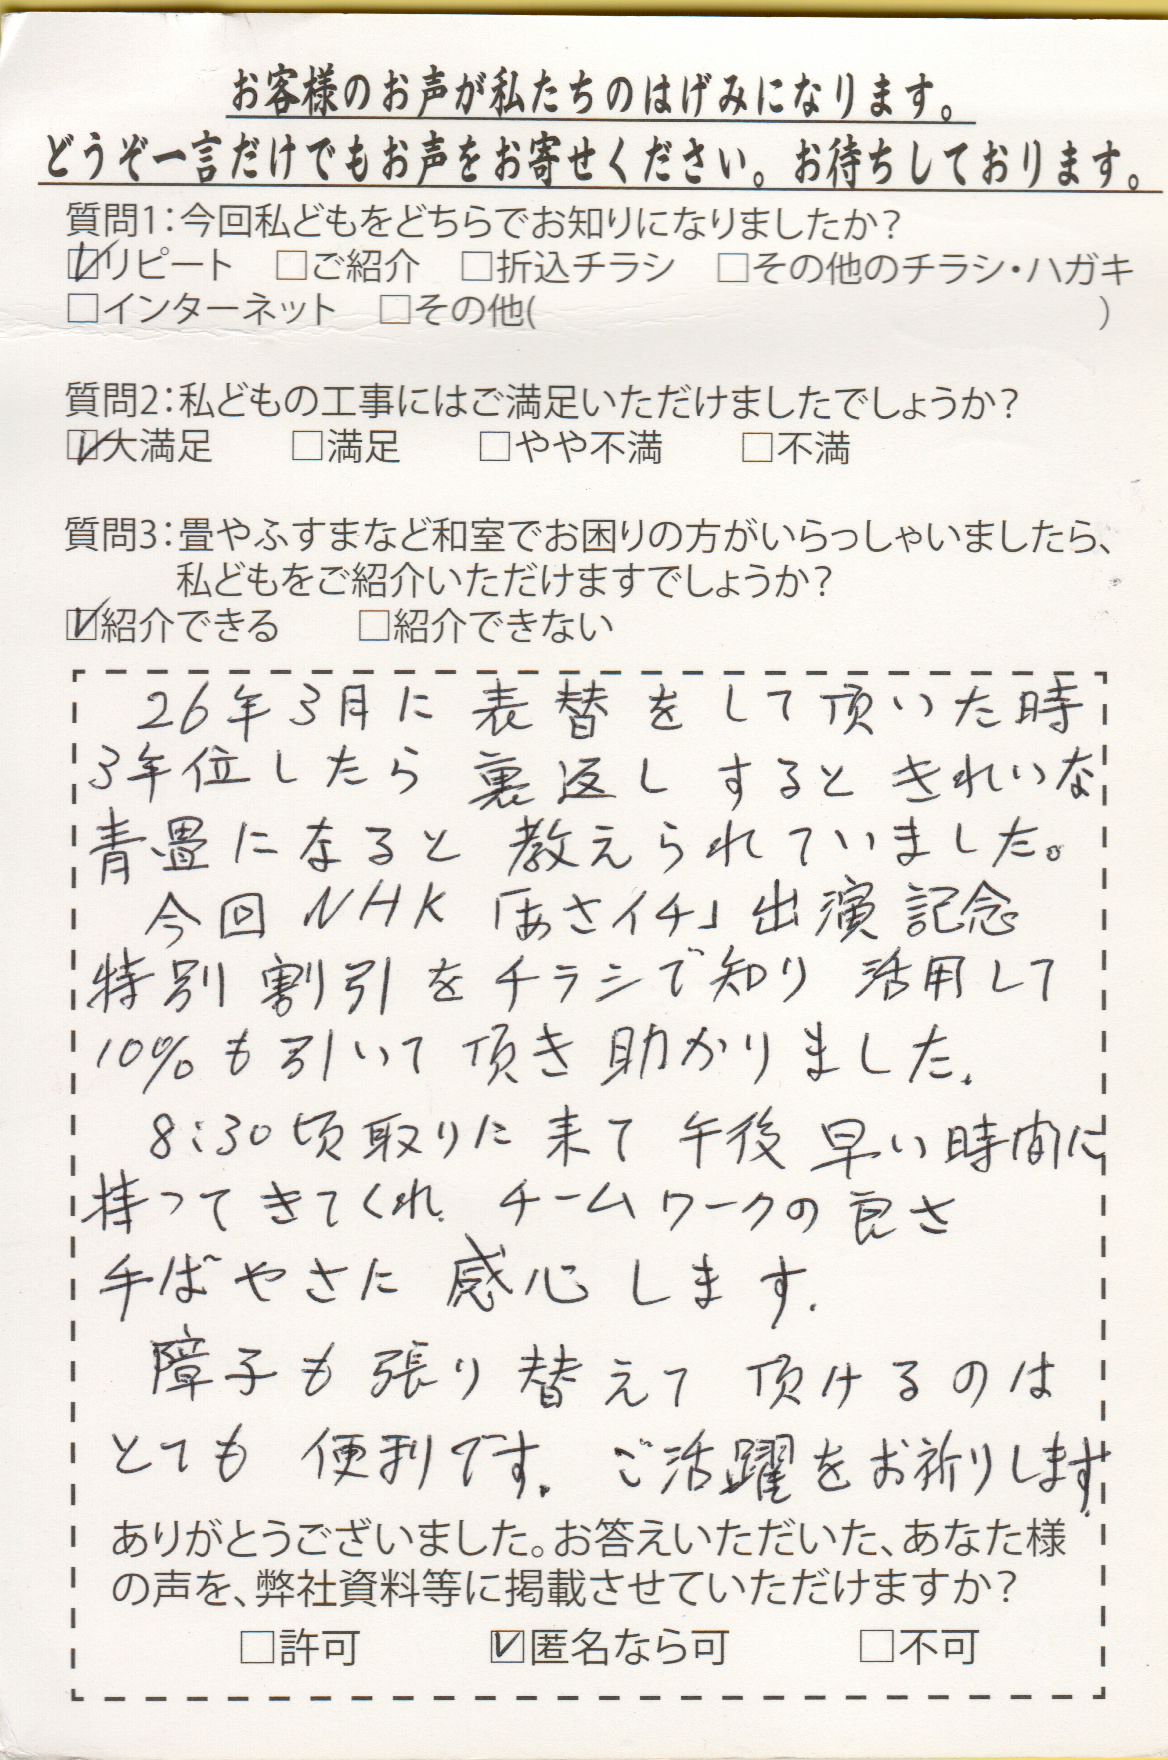 お客様のお声が私たちのはげみになります。
どうぞ一言だけでもお声をお寄せください。お待ちしております。
質問1：今回私どもをどちらでお知りになりましたか？
☑リピート □ご紹介 □折込チラシ □その他のチラシ・ハガキ
□インターネット □その他( )
質問2：私どもの工事にはご満足いただけましたでしょうか？
☑大満足 □満足 □やや不満 □不満
質問3：畳やふすまなど和室でお困りの方がいらっしゃいましたら、
私どもをご紹介いただけますでしょうか？
☑紹介できる □紹介できない
26年3月に表替をして頂いた時
3年位したら裏返しするときれいな
青畳になると教えられていました。
今回NHK「あさイチ」出演記念
特別割引をチラシで知り活用して
10%も引いて頂き助かりました.
8:30頃取りに来て午後早い時間に
持ってきてくれ.チームワークの良さ
手ばやさに感心します.
障子も張り替えて頂けるのは
とても便利です.ご活躍をお祈りします.
ありがとうございました。お答えいただいた、あなた様
の声を、弊社資料等に掲載させていただけますか？
□許可 ☑匿名なら可 □不可